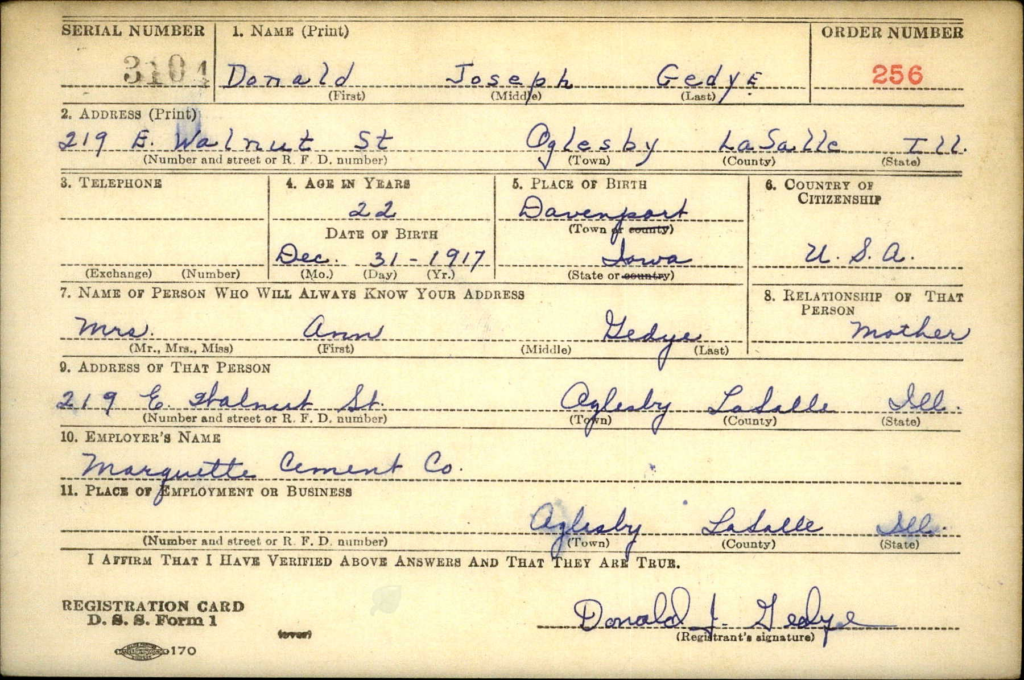 SERIAL NUMBER 1. NAME (Print) ORDER NUMBER
3104 Donald Joseph Gedye 256
(First) (Middle) (Last)
2. ADDRESS (Print)
219 E. Walnut St Oglesby LaSalle Ill.
(Number and street or R. F. D. number) (Town) (County) (State)
3. TELEPHONE 4. AGE IN YEARS 5. PLACE OF BIRTH 6. COUNTRY OF CITIZENSHIP
22 Davenport
DATE OF BIRTH (Town or county)
Dec. 31-1917 Iowa U. S. A.
(Exchange) (Number) (Mo.) (Day) (Yr.) (State or country)
7. NAME OF PERSON WHO WILL ALWAYS KNOW YOUR ADDRESS 8. RELATIONSHIP OF THAT PERSON
Mrs. Ann Gedye Mother
(Mr., Mrs., Miss) (First) (Middle) (Last)
9. ADDRESS OF THAT PERSON
219 E. Walnut St. Oglesby LaSalle Ill.
(Number and street or R. F. D. number) (Town) (County) (State)
10. EMPLOYER'S NAME
Marquette Cement Co.
11. PLACE OF EMPLOYMENT OR BUSINESS
Oglesby LaSalle Ill.
(Number and street or R. F. D. number) (Town) (County) (State)
I AFFIRM THAT I HAVE VERIFIED ABOVE ANSWERS AND THAT THEY ARE TRUE.
REGISTRATION CARD
D. S. S. Form 1
(over)
Donald J. Gedye
(Registrant's signature)
170